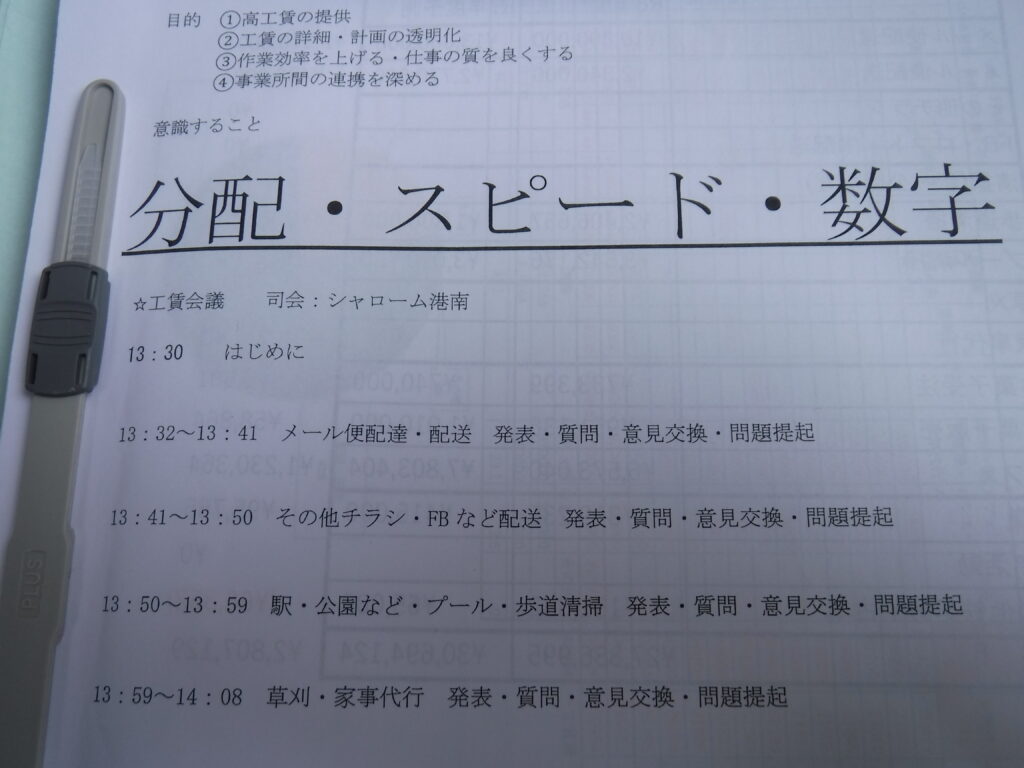 目的 ①高工賃の提供
②工賃の詳細・計画の透明化
③作業効率を上げる・仕事の質を良くする
④事業所間の連携を深める
意識すること
分配・スピード・数字
☆工賃会議 司会：シャローム港南
13：30 はじめに
13：32～13：41 メール便配達・配送 発表・質問・意見交換・問題提起
13：41～13：50 その他チラシ・FBなど配送 発表・質問・意見交換・問題提起
13：50～13：59 駅・公園など・プール・歩道清掃 発表・質問・意見交換・問題提起
13：59～14：08 草刈・家事代行 発表・質問・意見交換・問題提起
PLUS